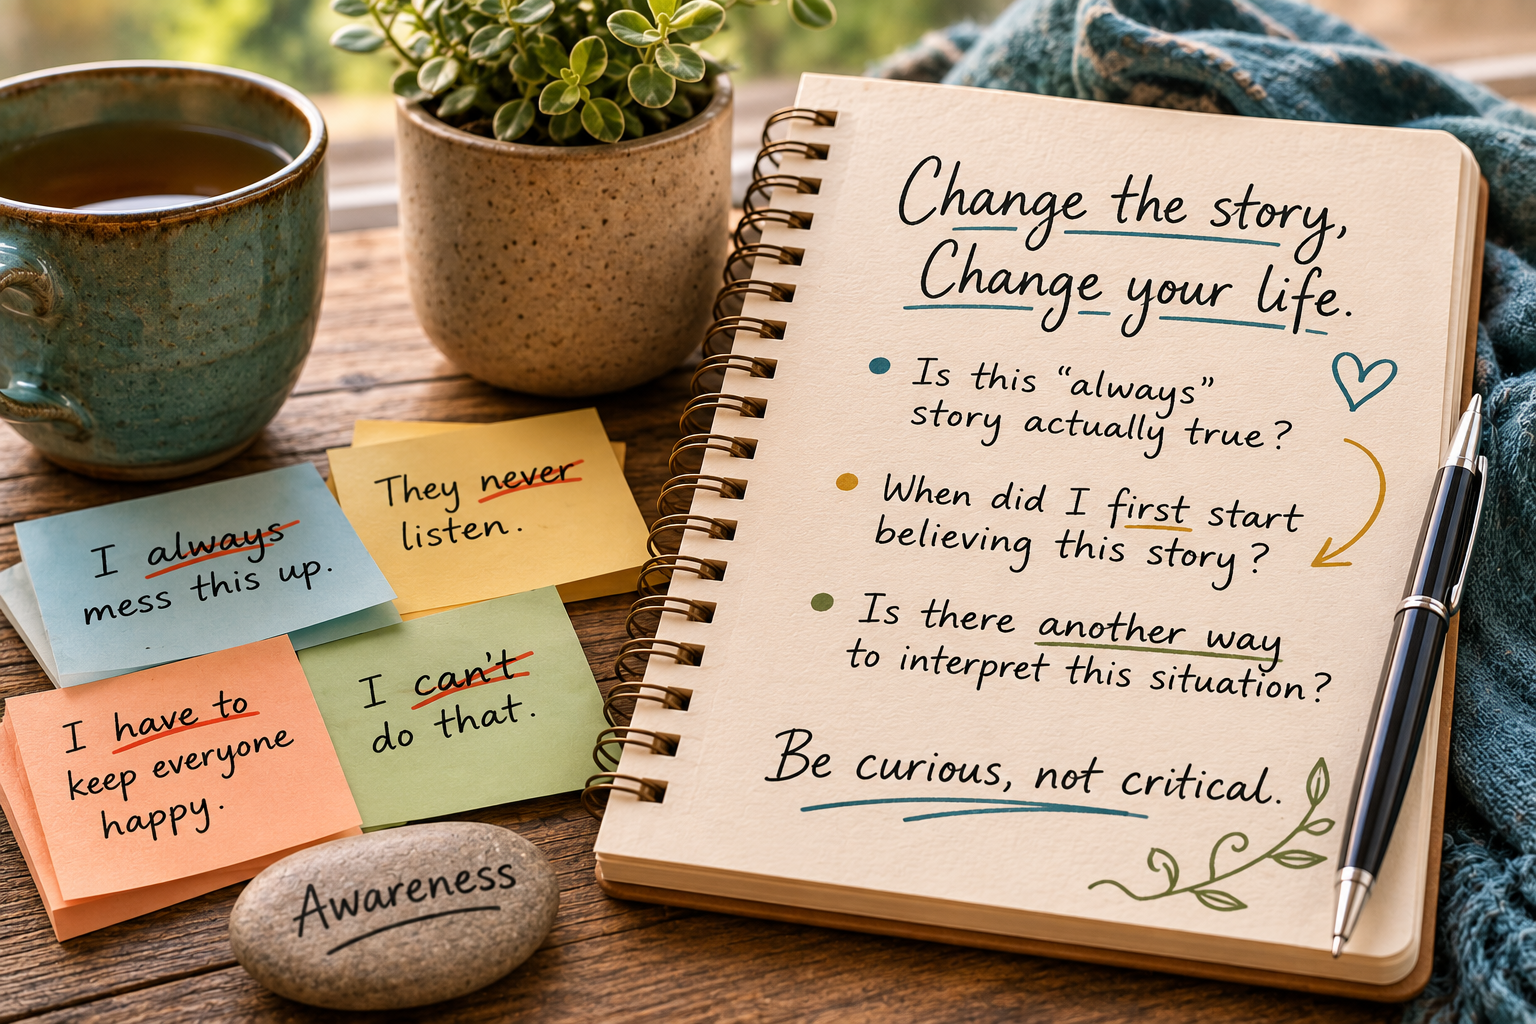 Change the story,
Change your life.
Is this “always”
story actually true?
When did I first start
believing this story?
Is there another way
to interpret this situation?
Be curious, not critical.
They never
listen.
I always
mess this up.
I can't
do that.
I have to
keep everyone
happy.
Awareness